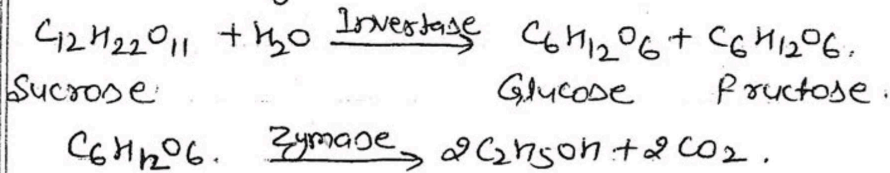 C12H22O11 + H2O Invertase → C6H12O6 + C6H12O6.
Sucrose Glucose Fructose.
C6H12O6. Zymase → 2C2H5OH + 2CO2.